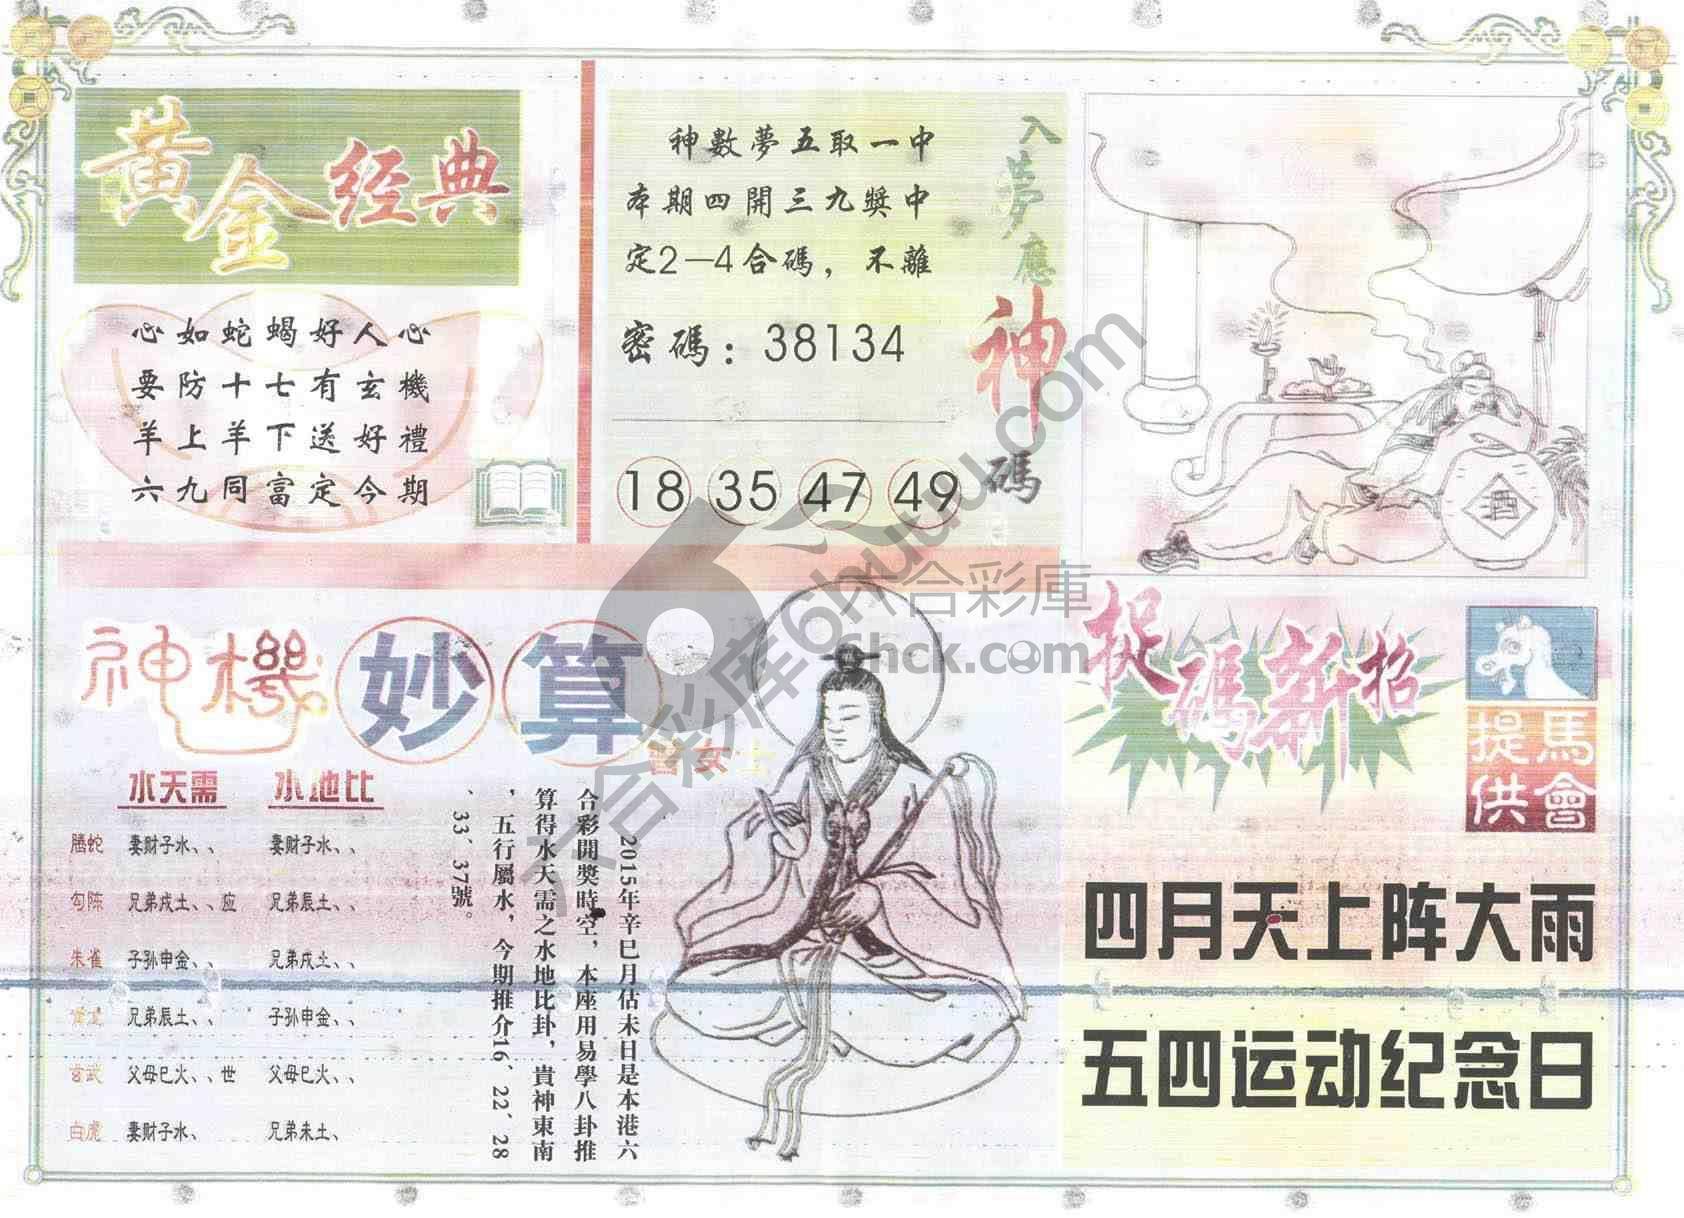 黄金经典
心如蛇蝎好人心
要防十七有玄機
羊上羊下送好禮
六九同富定今期
神數夢五取一中
本期四開三九獎中
定2—4合碼，不離
密碼：38134
18 35 47 49
入夢應神碼
酒
神機妙算
水天需 水地比
騰蛇 妻财子水、、 妻财子水、、
勾陈 兄弟戌土、、应 兄弟辰土、、
朱雀 子孙申金、、 兄弟戌土、、
兄弟辰土、、 子孙申金、、
玄武 父母巳火、、世 父母巳火、、
白虎 妻财子水、 兄弟未土、
2015年辛巳月估未日是本港六
合彩開獎時空，本座用易學八卦推
算得水天需之水地比卦，貴神東南
，五行屬水，今期推介16、22、28
、33、37號。
捉碼新招
馬會提供
四月天上阵大雨
五四运动纪念日
六合彩庫
6hck.com
六合彩库6huuu.com